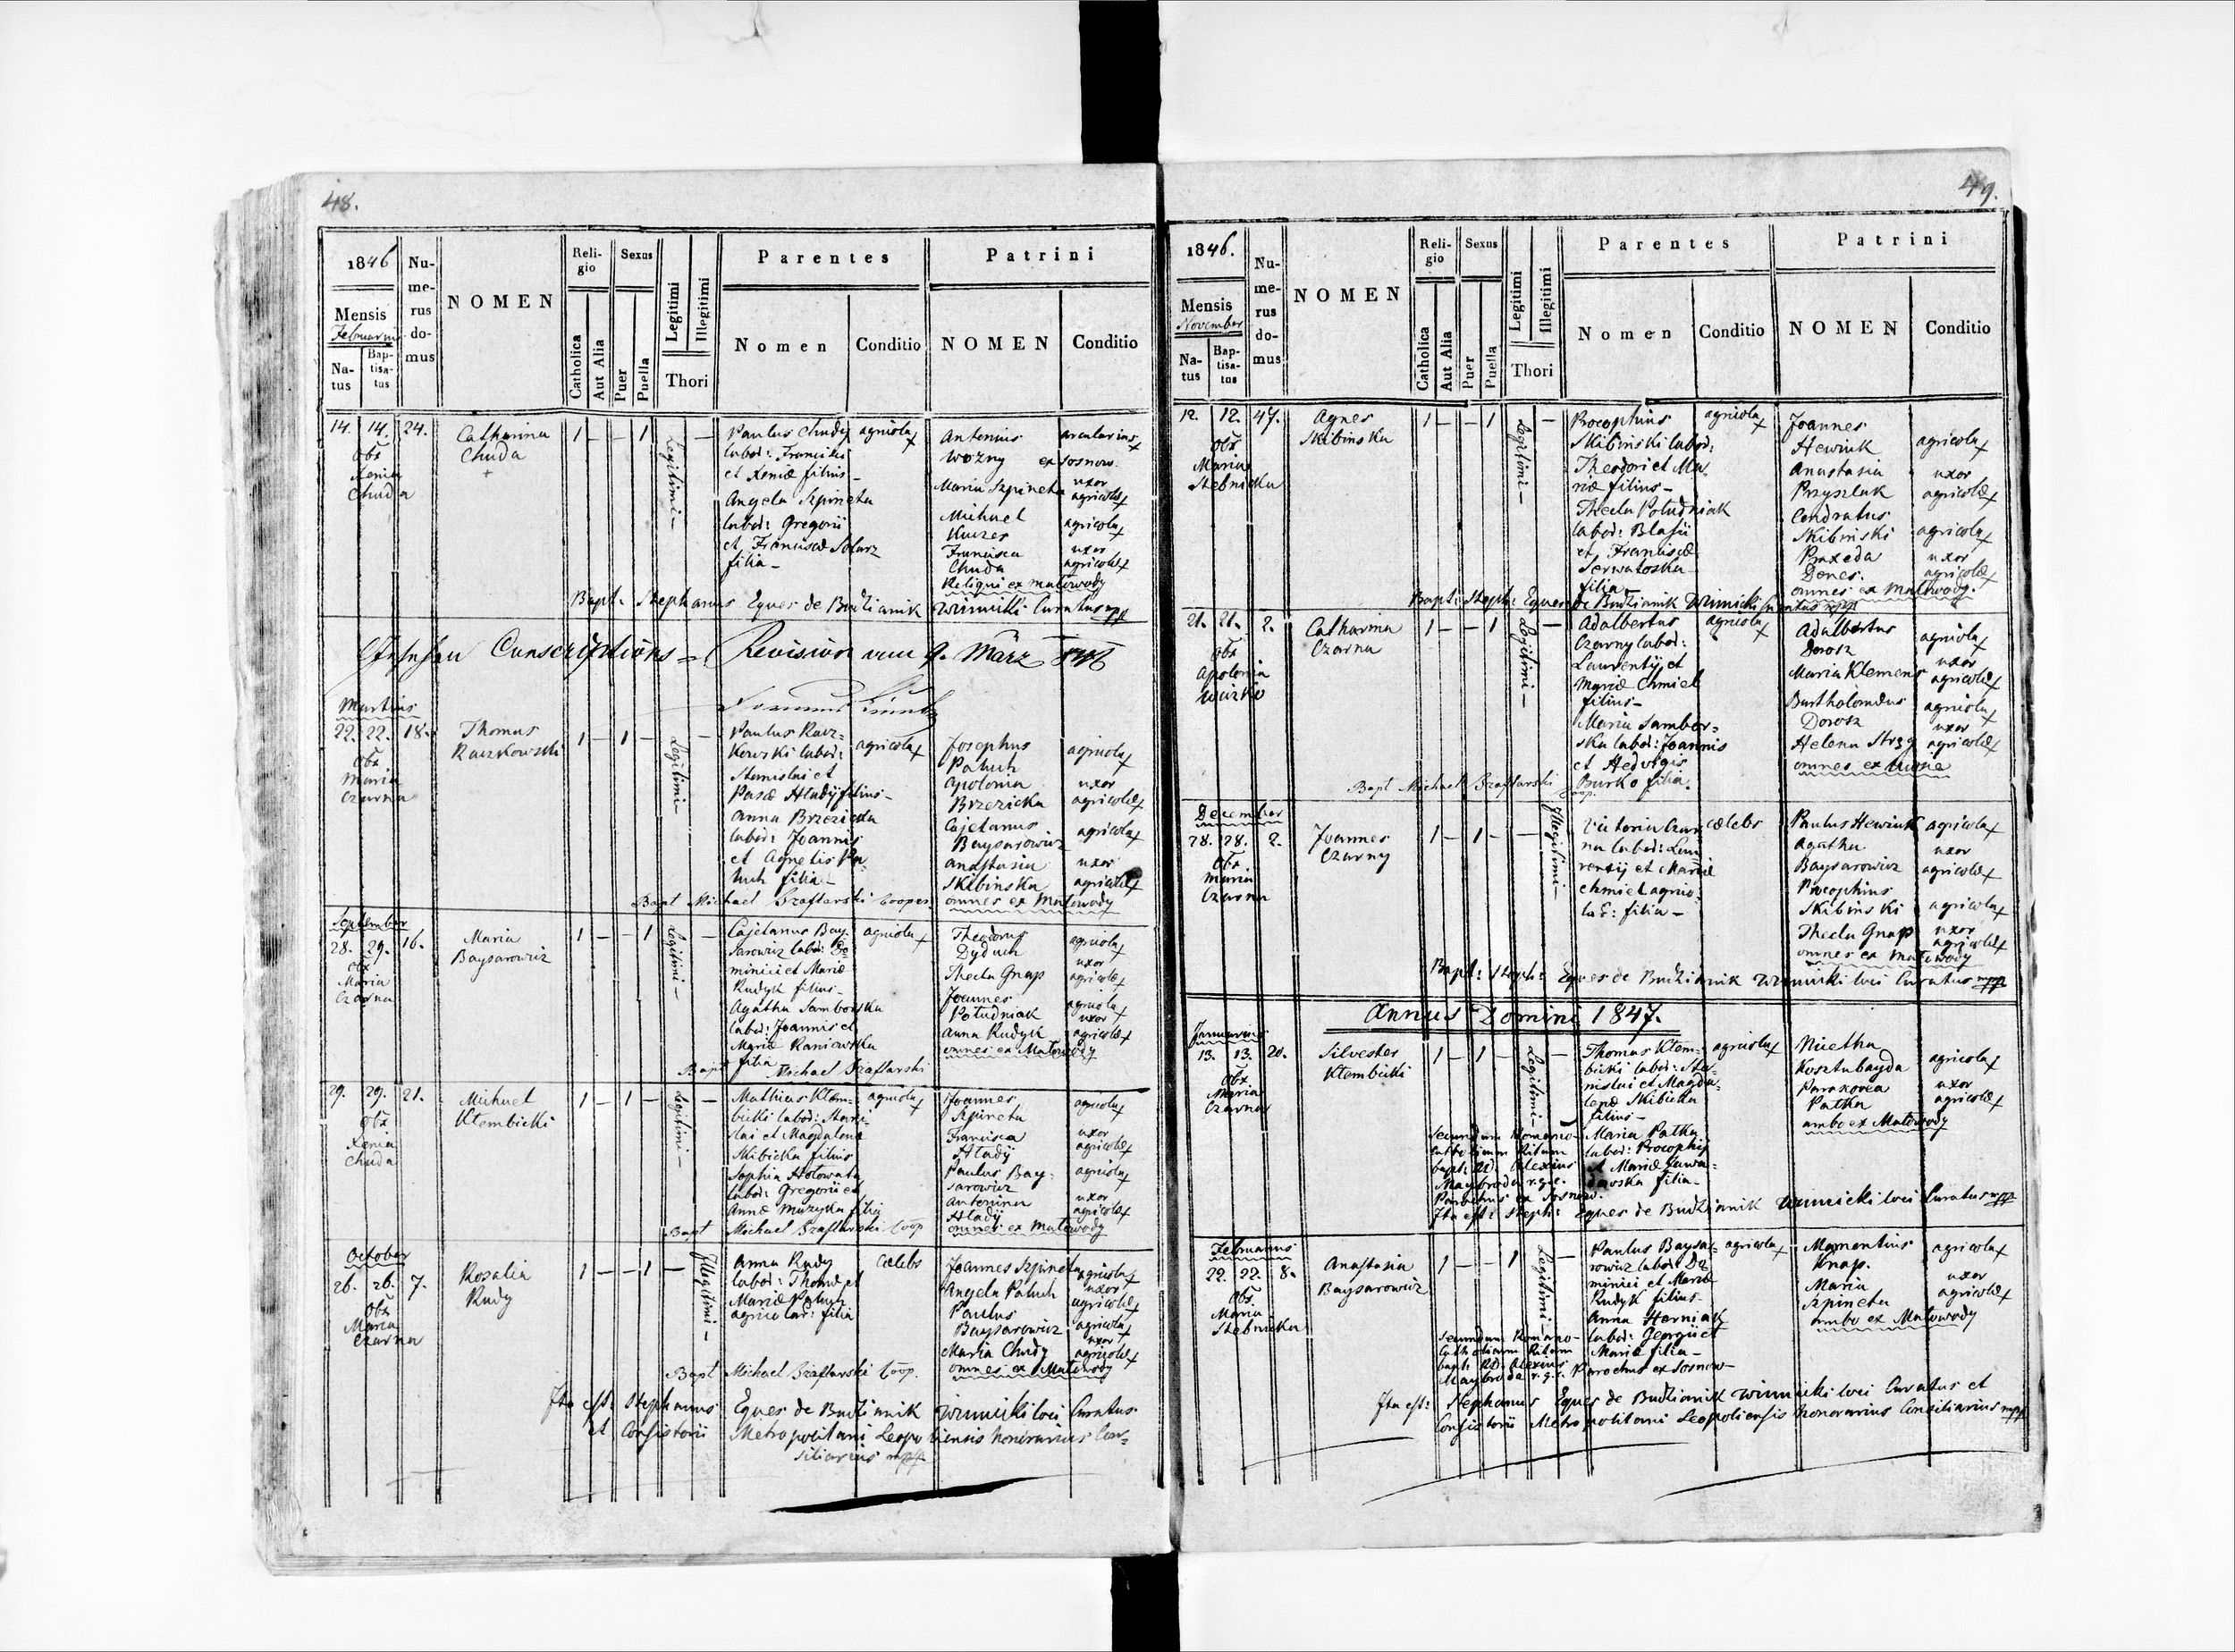 48.
1846
Mensis
Februarii
Natus
Baptisatus
Numerus domus
NOMEN
Religio
Catholica
Aut Alia
Sexus
Puer
Puella
Legitimi
Illegitimi
Thori
Parentes
Nomen
Conditio
Patrini
NOMEN
Conditio
14. 14. 24.
Obx
Xenia
Chuda
Catharina
Chuda
+
1 — — 1
Legitimi —
—
Paulus Chudy
labor: Francisci
et Xeniæ filius —
Angela Szpineta
labor: Gregorii
et Franciscæ Solarz
filia —
agricola
Antonius
Wozny
Maria Szpineta
Michael
Franciska
Chuda
Reliqui ex Matowody
arcularius
ex Sosnow.
uxor
agricolæ
agricola
uxor
agricolæ
Bapt: Stephanus Eques de Budzianik Winnicki Curatus mpp
Conscriptions = Revision vom 9. März 1846
Martius
22. 22. 18.
Obx
Maria
Czarna
Thomas
Raczkowski
1 — 1 —
Legitimi —
—
Paulus Racz-
kowski labor:
Stanislai et
Pasæ Hladÿ filius —
Anna Brzezicka
labor: Joannis
et Agnetis Pa-
luch filia —
agricola
Josephus
Paluch
Apolonia
Brzezicka
Cajetanus
Baysarowicz
Anastasia
Skibinska
omnes ex Matowody
agricola
uxor
agricolæ
agricola
uxor
agricolæ
Bapt Michael Szaflarski Cooper.
September
28. 29. 16.
Obx
Maria
Czarna
Maria
Baysarowicz
1 — — 1
Legitimi —
—
Cajetanus Bay-
sarowicz labor: Do-
minici et Mariæ
Rudyk filius —
Agatha Samborska
labor: Joannis et
Mariæ Raniowska
filia
agricola
Theodorus
Dyduch
Thecla Gnap
Joannes
Południak
Anna Rudyk
omnes ex Matowody
agricola
uxor
agricolæ
agricola
uxor
agricolæ
Bapt Michael Szaflarski
29. 29. 21.
Obx
Xenia
Chuda
Michael
Ktembicki
1 — 1 —
Legitimi —
—
Mathias Ktem-
bicki labor: Stani-
slai et Magdalenæ
Skibicka filius
Sophia Hołowata
labor: Gregorii et
Annæ Muzyka filia
agricola
Joannes
Szpineta
Francisca
Hladÿ
Paulus Bay-
sarowicz
Antonina
Hladÿ
omnes ex Matowody
agricola
uxor
agricolæ
agricola
uxor
agricolæ
Bapt Michael Szaflarski Coop
October
26. 26. 7.
Obx
Maria
Czarna
Rosalia
Rudy
1 — — 1 —
Illegitimi —
Anna Rudy
labor: Thomæ et
Mariæ Paluch
agricolar: filia
cælebs
Joannes Szpineta
Angela Paluch
Paulus
Baysarowicz
Maria Chudy
omnes ex Matowody
agricola
uxor
agricolæ
agricola
uxor
agricolæ
Bapt Michael Szaflarski Coop.
Ita est: Stephanus Eques de Budzianik Winnicki loci Curatus
et Consistorii Metropolitani Leopoliensis honorarius Con-
siliarius mpp
49.
1846.
Mensis
November
Natus
Baptisatus
Numerus domus
NOMEN
Religio
Catholica
Aut Alia
Sexus
Puer
Puella
Legitimi
Illegitimi
Thori
Parentes
Nomen
Conditio
Patrini
NOMEN
Conditio
12. 12. 47.
Obx
Maria
Stebnicka
Agnes
Skibinska
1 — — 1
Legitimi —
—
Procophius
Skibinski labor:
Theodori et Ma-
riæ filius —
Thecla Południak
labor: Blasii
et Franciscæ
Serwatoska
filia —
agricola
Joannes
Hewiuk
Anastasia
Przyszlak
Condratus
Skibinski
Praxeda
Denes.
omnes ex Matowody.
agricola
uxor
agricolæ
agricola
uxor
agricolæ
Bapt: Steph: Eques de Budzianik Winnicki Curatus mpp
21. 21. 2.
Obx
Apolonia
Catharina
Czarna
1 — — 1
Legitimi —
—
Adalbertus
Czarny labor:
Laurentÿ et
Mariæ Chmiel
filius —
Maria Sambor-
ska labor: Joannis
et Hedvigis
Burko filia.
agricola
Adalbertus
Dorosz
Maria Klemens
Bartholomæus
Dorosz
Helena
agricola
uxor
agricolæ
agricola
uxor
agricolæ
Bapt Michael Szaflarski Coop.
December
28. 28. 2.
Obx
Maria
Czarna
Joannes
Czarny
1 — 1 — —
Illegitimi —
Victoria Czar-
na labor: Lau-
rentÿ et Mariæ
Chmiel agrico-
lar: filia —
cælebs
Paulus Hewiuk
Agatha
Baysarowicz
Procophius
Skibinski
Thecla Gnap
omnes ex Matowody
agricola
uxor
agricolæ
agricola
uxor
agricolæ
Bapt: Steph: Eques de Budzianik Winnicki loci Curatus mpp
Annus Domini 1847.
Januarius
13. 13. 20.
Obx
Maria
Czarna
Silvester
Ktembicki
1 — 1 —
Legitimi —
—
Thomas Ktem-
bicki labor: Sta-
nislai et Magda-
lenæ Skibicka
filius —
Maria Patka
labor: Procophÿ
et Mariæ
filia —
agricola
Nicetha
Kosztubayda
Paraxovea
Patka
ambo ex Matowody
agricola
uxor
agricolæ
Secundum Romano-
catholicum Ritum
bapt: RD. Alexius
Maybroda r.g.c.
Parochus ex Sosnow.
Ita est: Steph: Eques de Budzianik Winnicki loci Curatus mpp
Februarius
22. 22. 8.
Obx.
Maria
Stebnicka
Anastasia
Baysarowicz
1 — — 1
Legitimi —
—
Paulus Baysa-
rowicz labor: Do-
minici et Mariæ
Rudyk filius —
Anna Herniak
labor: Georgii et
Mariæ filia —
agricola
Mamentius
Knap.
Maria
Szpineta
ambo ex Matowody
agricola
uxor
agricolæ
Secundum Romano-
Catholicum Ritum
bapt: RD. Alexius
Maybroda r.g.c. Parochus ex Sosnow
Ita est: Stephanus Eques de Budzianik Winnicki loci Curatus et
Consistorii Metropolitani Leopoliensis honorarius Consiliarius mpp